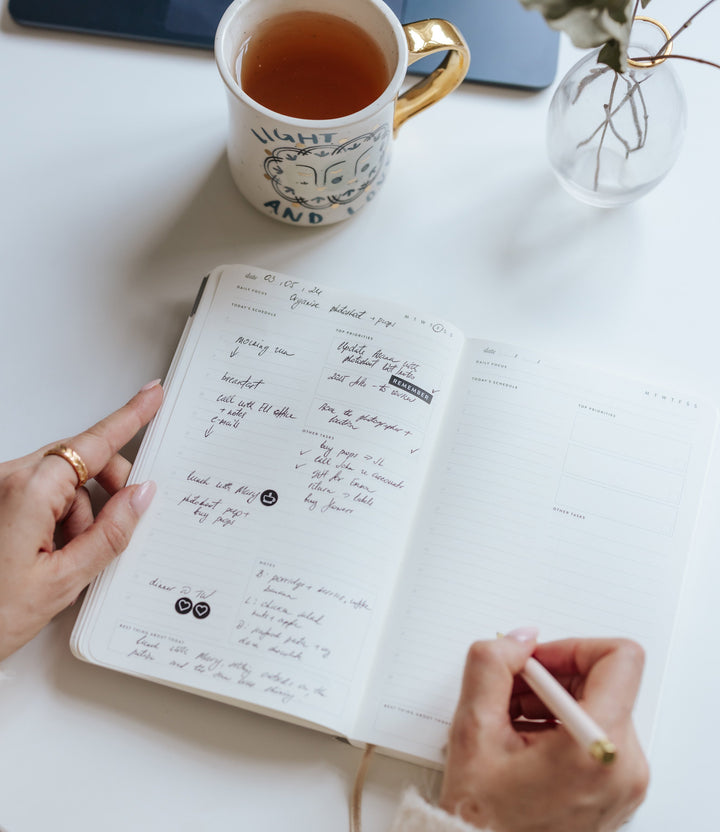 LIGHT
AND LOVE
date 03.05.24
DAILY FOCUS
Organise photoshoot + props
M T W T F S S
TODAY'S SCHEDULE
morning run
breakfast
call with EU office
+ notes
e-mails
lunch with Mary
photoshoot prep +
buy props
dinner @ TW
TOP PRIORITIES
Update Roma with
photoshoot list notes
2025 jobs - to review
REMEMBER
the photographer +
location
OTHER TASKS
buy props → JL
call John re accounts
gift for Emma
return → labels
buy flowers
NOTES
B: porridge + berries, coffee
banana
L: chicken salad
nuts + apple
D: seafood pasta + veg
dark chocolate
BEST THING ABOUT TODAY
lunch with Mary, sitting outside on the
patio and the sun was shining
date
DAILY FOCUS
M T W T F S S
TODAY'S SCHEDULE
TOP PRIORITIES
OTHER TASKS
BEST THING ABOUT TODAY